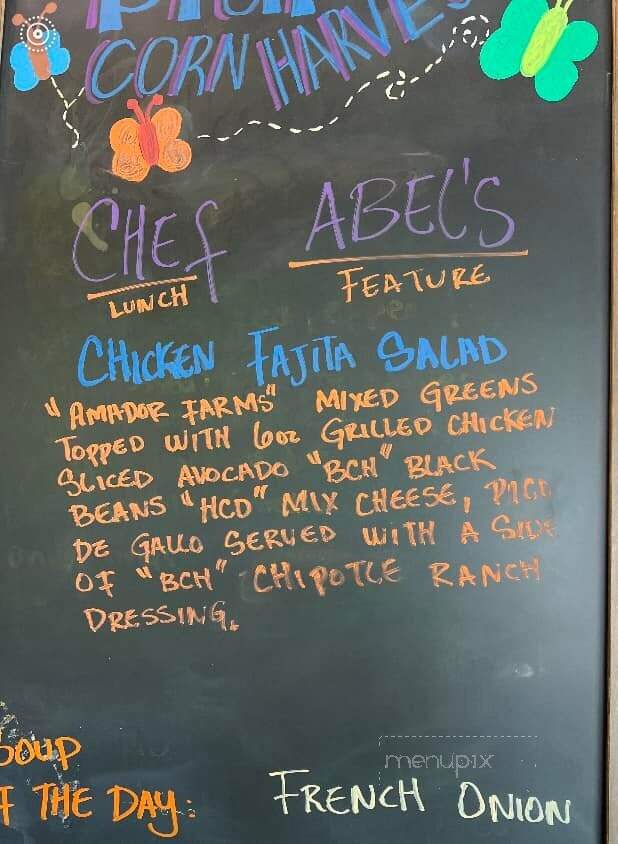 CORN HARVES
CHEF ABEL'S
LUNCH FEATURE
CHICKEN FAJITA SALAD
"AMADOR FARMS" MIXED GREENS
TOPPED WITH 6oz GRILLED CHICKEN
SLICED AVOCADO "BCH" BLACK
BEANS "HCD" MIX CHEESE, PICO
DE GALLO SERVED WITH A SIDE
OF "BCH" CHIPOTLE RANCH
DRESSING.
SOUP
F THE DAY: FRENCH ONION
menupix